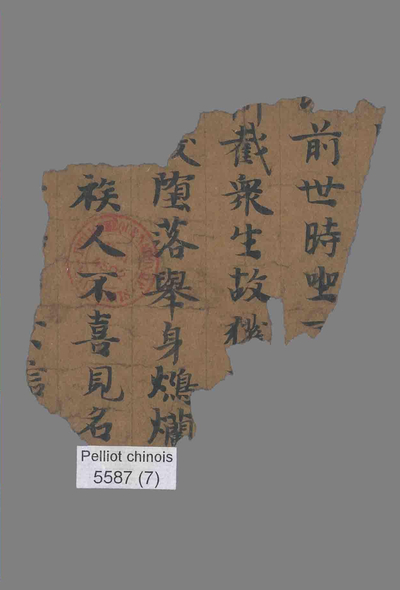 前世時坐
截衆生故獄
墮落舉身爛
族人不喜見名
不信
Pelliot chinois
5587 (7)